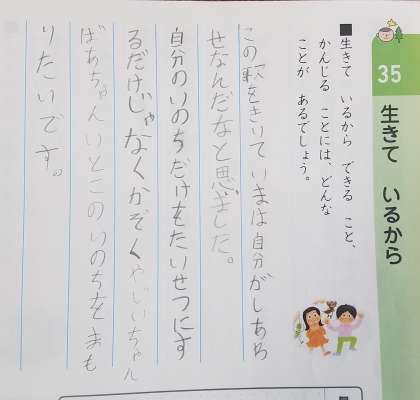 35
生きて いるから
■生きて いるから できる こと、
かんじる ことには、どんな
ことが あるでしょう。
この歌をきいていまは自分がしあわ
せなんだなと思いました。
自分のいのちだけをたいせつにす
るだけじゃなくかぞくやじいちゃん
ばあちゃんいとこのいのちをまも
りたいです。